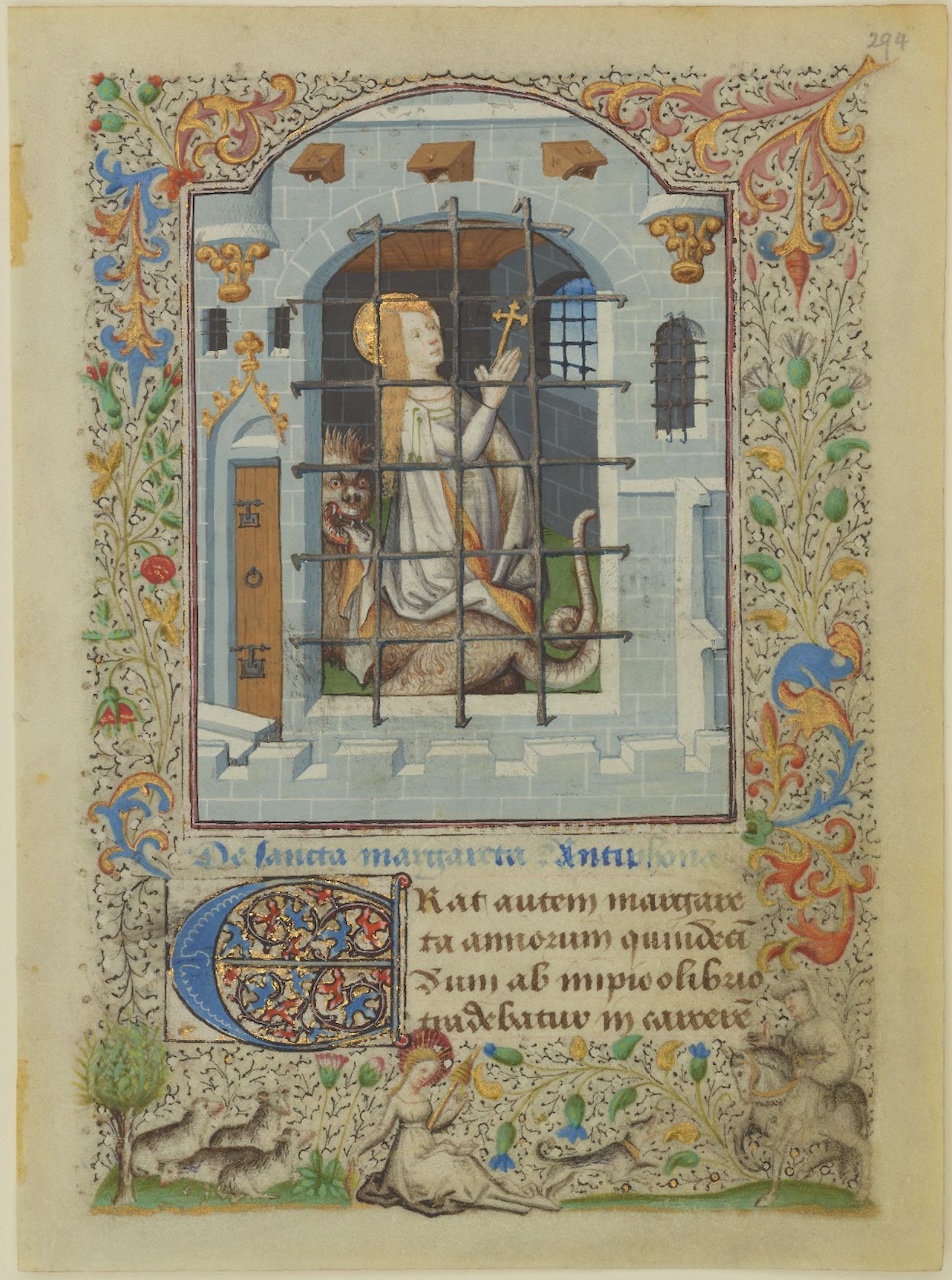 294
De sancta margareta Antiphona
ERat autem margare
ta annorum quindecī
Dum ab impio olibrio
tradebatur in carcerē